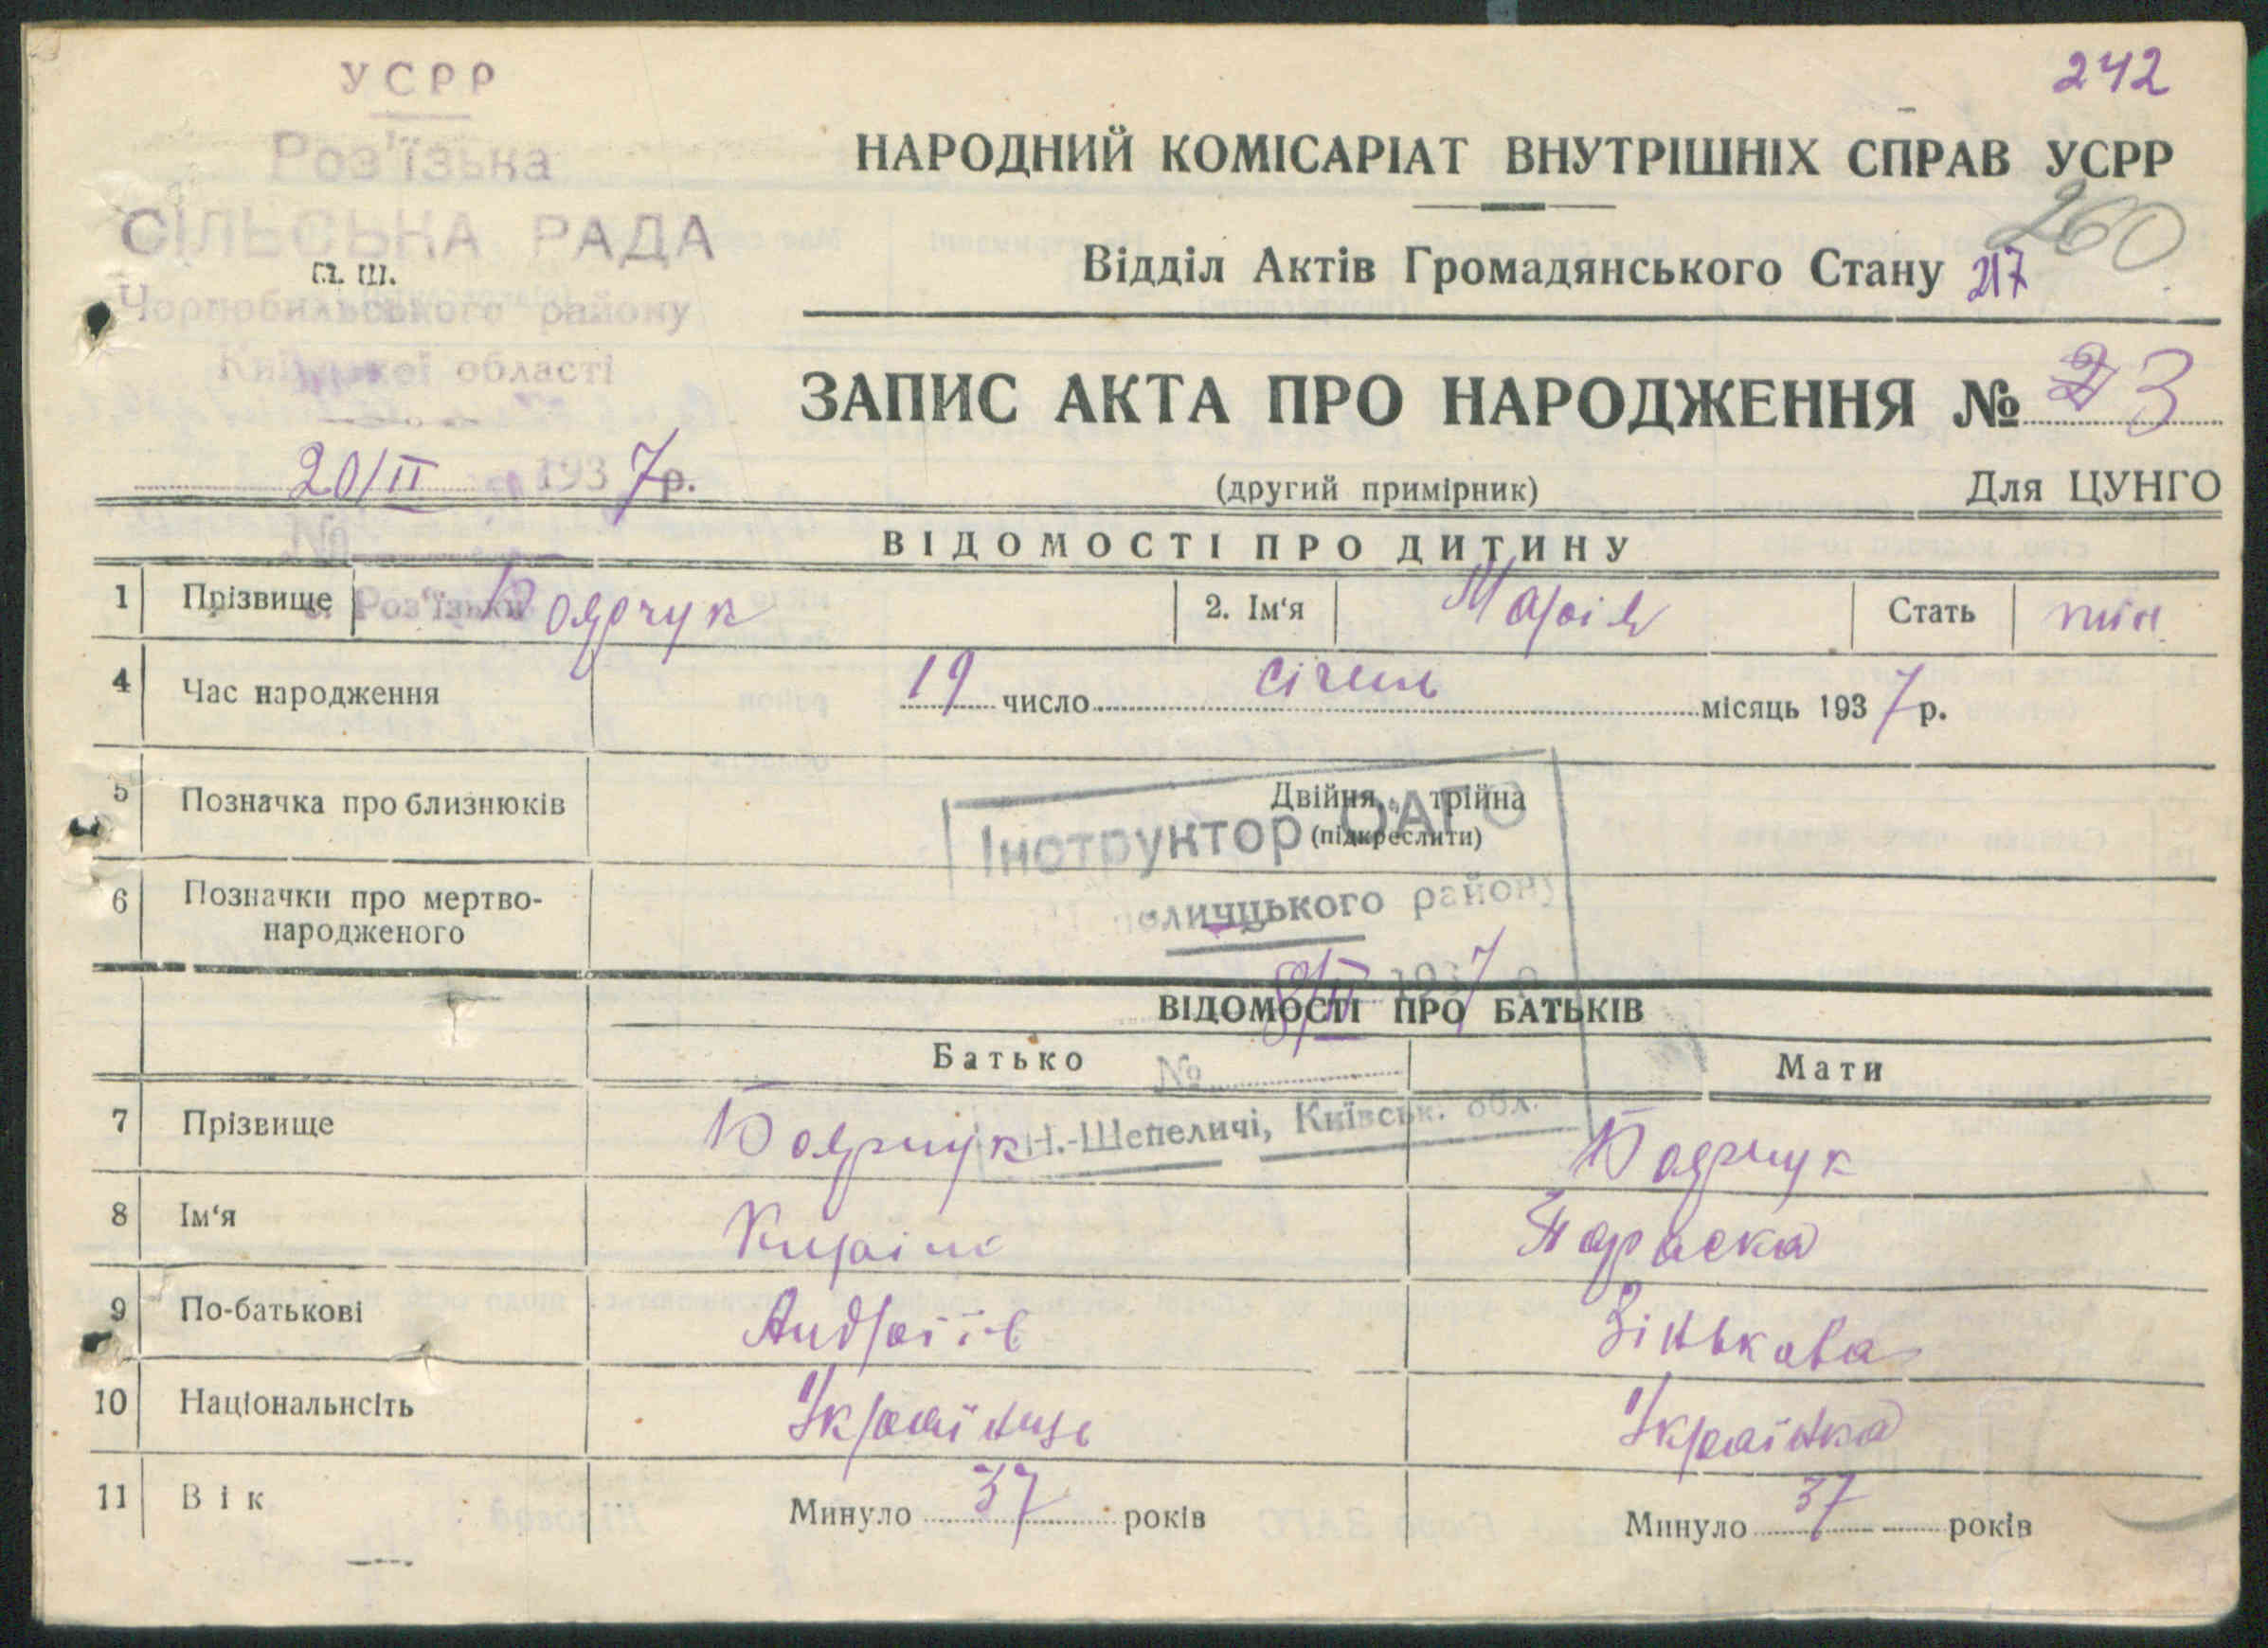 242
УСРР
Роз'їзька
СІЛЬСЬКА РАДА
п. ш.
Чорнобильського району
Київської області
20/II 1937р.
№
с. Роз'їзьки
НАРОДНИЙ КОМІСАРІАТ ВНУТРІШНІХ СПРАВ УСРР
260
Відділ Актів Громадянського Стану 217
ЗАПИС АКТА ПРО НАРОДЖЕННЯ № 3
(другий примірник) Для ЦУНГО
ВІДОМОСТІ ПРО ДИТИНУ
1 Прізвище Боярчук 2. Ім‘я Марія Стать жін
4 Час народження 19 число січень місяць 1937 р.
5 Позначка про близнюків Двійня, трійна
(підкреслити)
6 Позначки про мертво-
народженого
Інструктор ОАГС
району
8/II 1937 р
№
Н.-Шепеличі, Київськ. обл.
ВІДОМОСТІ ПРО БАТЬКІВ
Батько Мати
7 Прізвище Боярчук Боярчук
8 Ім‘я Кирило Параска
9 По-батькові Андріїв Зінькова
10 Національнсіть Українець Українка
11 Вік Минуло 37 років Минуло 37 років